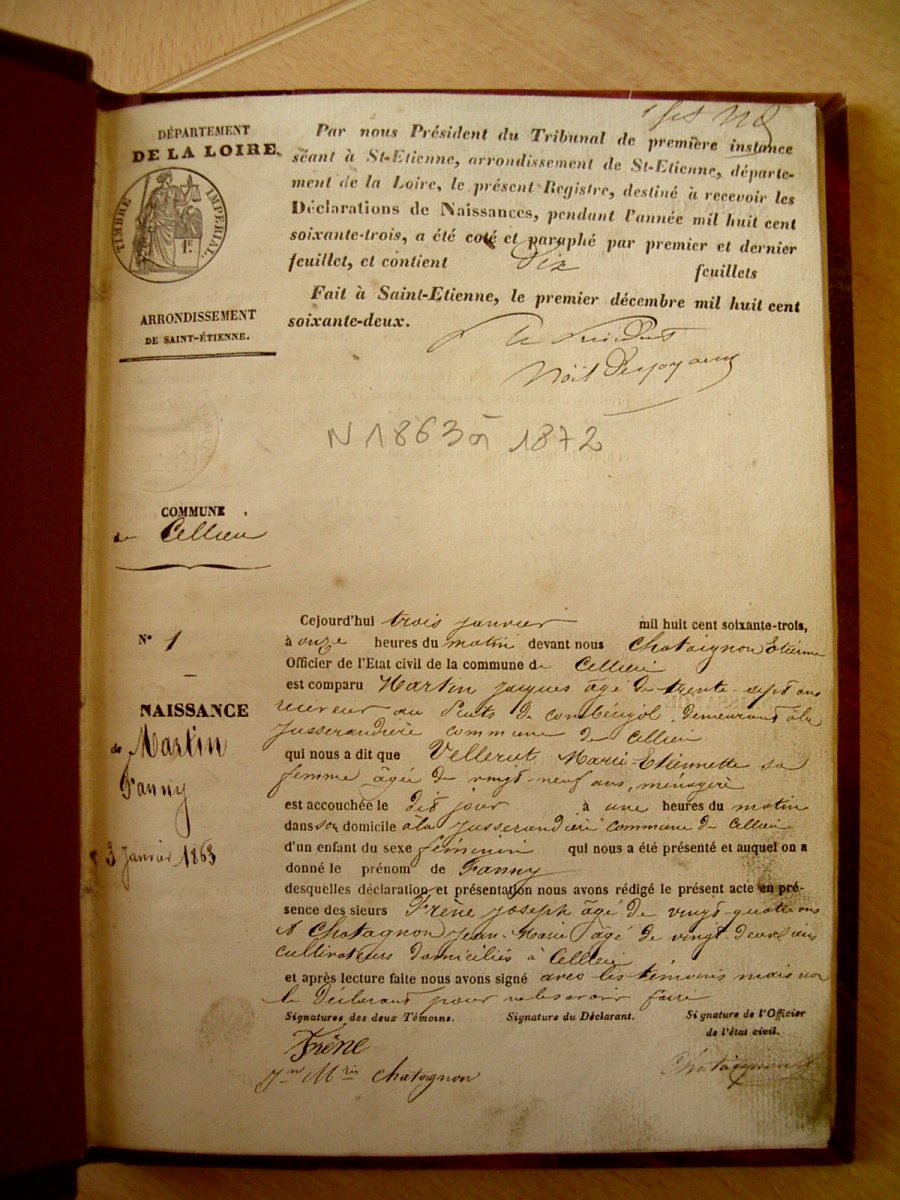 DÉPARTEMENT
DE LA LOIRE.
TIMBRE IMPERIAL.
1F.
ARRONDISSEMENT
DE SAINT-ÉTIENNE.
Par nous Président du Tribunal de première instance
séant à St-Etienne, arrondissement de St-Etienne, départe-
ment de la Loire, le présent Registre, destiné à recevoir les
Déclarations de Naissances, pendant l'année mil huit cent
soixante-trois, a été coté et paraphé par premier et dernier
feuillet, et contient Dix feuillets
Fait à Saint-Etienne, le premier décembre mil huit cent
soixante-deux.
N 1863 à 1872
COMMUNE
de Cellieu
N° 1
NAISSANCE
de Martin
Fanny
3 Janvier 1863
Cejourd'hui trois janvier mil huit cent soixante-trois,
à onze heures du matin devant nous Chataignon Etienne
Officier de l'Etat civil de la commune de Cellieu
est comparu Martin Jacques âgé de trente-sept ans
mineur au Puits de demeurant à la
Jusserandière commune de Cellieu
qui nous a dit que Vellerut Marie-Etiennette sa
femme âgée de vingt-neuf ans, ménagère
est accouchée le dit jour à une heures du matin
dans son domicile à la Jusserandière commune de Cellieu
d'un enfant du sexe féminin qui nous a été présenté et auquel on a
donné le prénom de Fanny
desquelles déclaration et présentation nous avons rédigé le présent acte en pré-
sence des sieurs Frène Joseph âgé de vingt-quatre ans
et Chatagnon Jean-Marie âgé de vingt-deux ans
cultivateurs domiciliés à Cellieu
et après lecture faite nous avons signé avec les témoins mais non
le Déclarant pour ne le savoir faire
Signatures des deux Témoins. Signature du Déclarant. Signature de l'Officier
de l'état civil.
Frène
Jn Mrie Chatagnon
Chataignon